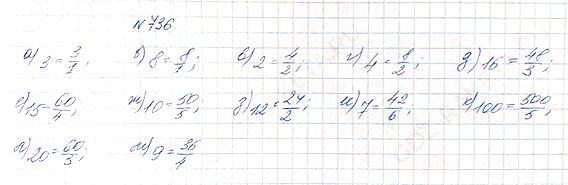 №736
а) 3 = 3/1; б) 8 = 8/1; в) 2 = 4/2; г) 4 = 8/2; д) 16 = 48/3;
е) 15 = 60/4; ж) 10 = 50/5; з) 12 = 24/2; и) 7 = 42/6; к) 100 = 500/5;
л) 20 = 60/3; м) 9 = 36/4